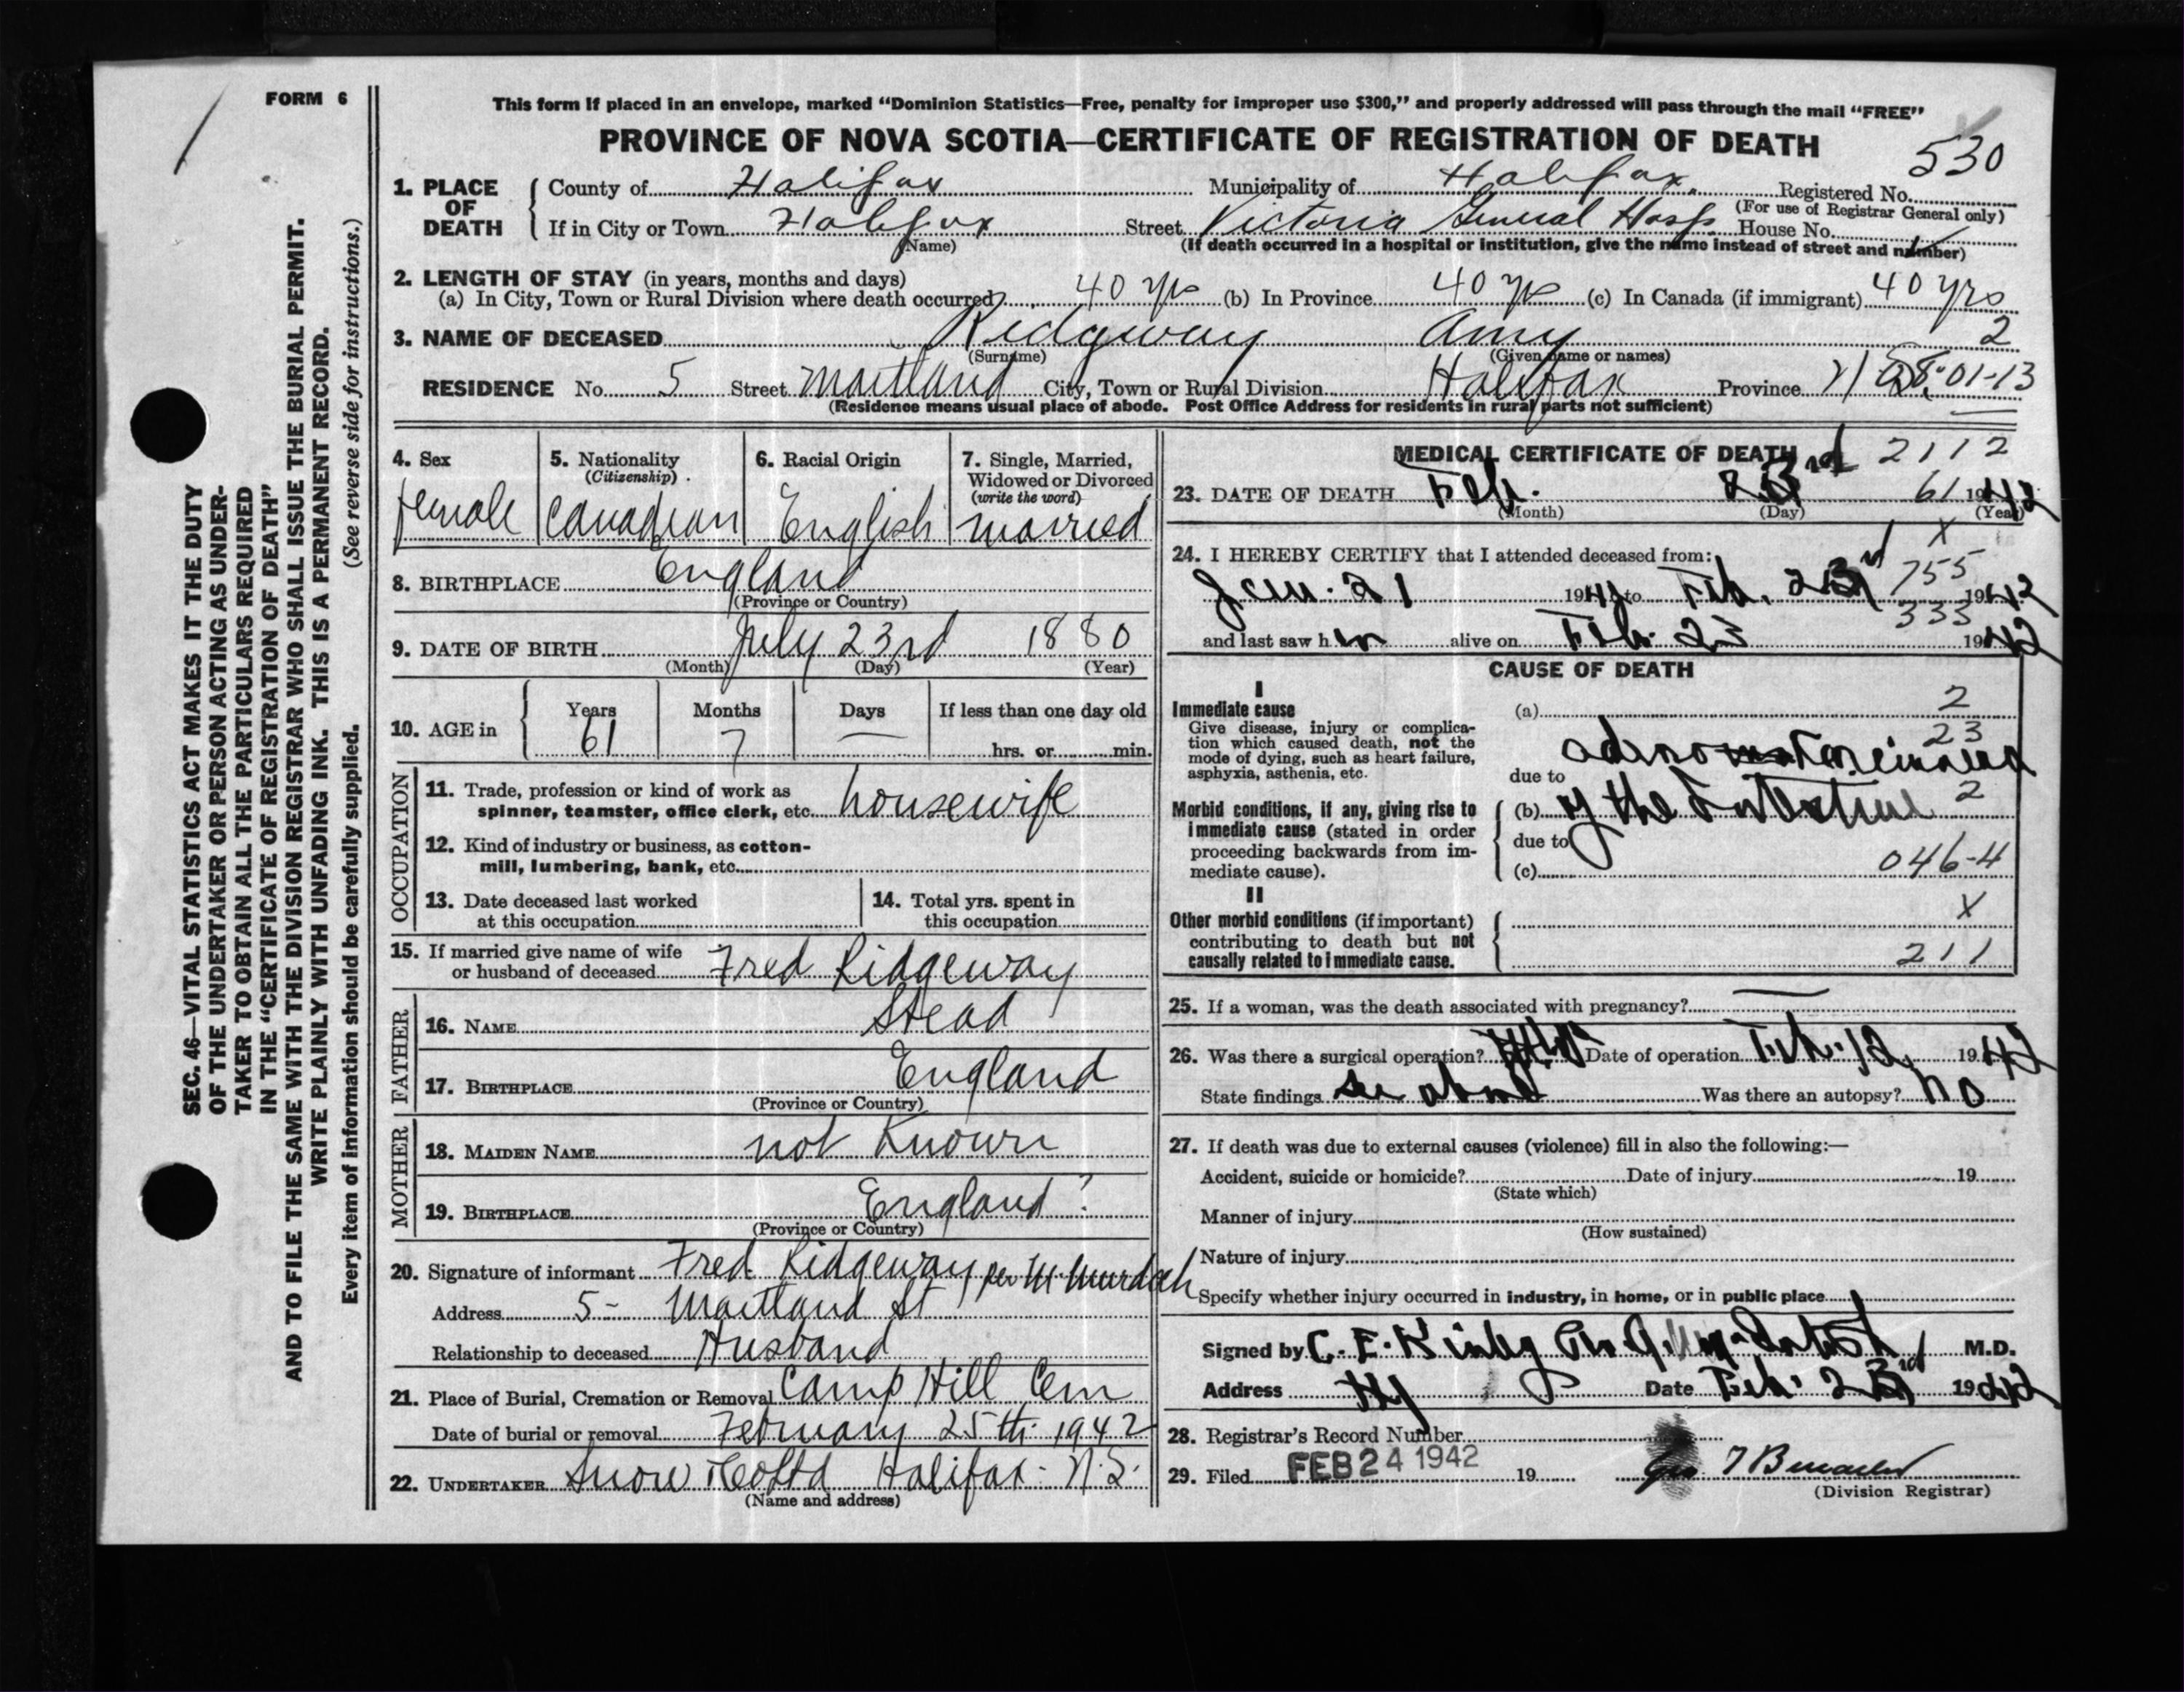 FORM 6
This form if placed in an envelope, marked “Dominion Statistics—Free, penalty for improper use $300,” and properly addressed will pass through the mail “FREE”
PROVINCE OF NOVA SCOTIA—CERTIFICATE OF REGISTRATION OF DEATH
530
1. PLACE OF DEATH
County of Halifax Municipality of Halifax. Registered No.
(For use of Registrar General only)
If in City or Town Halifax Street Victoria General Hosp. House No.
(Name) (If death occurred in a hospital or institution, give the name instead of street and number)
2. LENGTH OF STAY (in years, months and days)
(a) In City, Town or Rural Division where death occurred 40 yrs (b) In Province 40 yrs (c) In Canada (if immigrant) 40 yrs
3. NAME OF DECEASED Ridgway Amy 2
(Surname) (Given name or names)
RESIDENCE No. 5 Street Maitland City, Town or Rural Division Halifax Province 01-13
(Residence means usual place of abode. Post Office Address for residents in rural parts not sufficient)
4. Sex
female
5. Nationality
(Citizenship)
Canadian
6. Racial Origin
English
7. Single, Married, Widowed or Divorced
(write the word)
married
8. BIRTHPLACE England
(Province or Country)
9. DATE OF BIRTH July 23rd 1880
(Month) (Day) (Year)
10. AGE in Years Months Days If less than one day old
61 7 — hrs. or min.
OCCUPATION
11. Trade, profession or kind of work as
spinner, teamster, office clerk, etc. housewife
12. Kind of industry or business, as cotton-
mill, lumbering, bank, etc.
13. Date deceased last worked
at this occupation
14. Total yrs. spent in
this occupation
15. If married give name of wife
or husband of deceased Fred Ridgeway
FATHER
16. NAME Stead
17. BIRTHPLACE England
(Province or Country)
MOTHER
18. MAIDEN NAME not Known
19. BIRTHPLACE England ?
(Province or Country)
20. Signature of informant Fred Ridgeway per M. Murdoch
Address 5- Maitland St
Relationship to deceased Husband
21. Place of Burial, Cremation or Removal Camp Hill Cem
Date of burial or removal February 25th 1942
22. UNDERTAKER Snow & Co Ltd Halifax N.S.
(Name and address)
MEDICAL CERTIFICATE OF DEATH
2112
23. DATE OF DEATH Feb. 23rd 61 1942
(Month) (Day) (Year)
X
24. I HEREBY CERTIFY that I attended deceased from:
755
Jan. 21 1942 to Feb. 23rd 1942
333
and last saw her alive on Feb. 23 1942
CAUSE OF DEATH
I
Immediate cause
Give disease, injury or complica-
tion which caused death, not the
mode of dying, such as heart failure,
asphyxia, asthenia, etc.
(a) 2
23
due to adenocarcinoma
Morbid conditions, if any, giving rise to
immediate cause (stated in order
proceeding backwards from im-
mediate cause).
(b) of the Intestine 2
due to
(c) 046-4
II
Other morbid conditions (if important)
contributing to death but not
causally related to immediate cause.
X
211
25. If a woman, was the death associated with pregnancy? —
26. Was there a surgical operation? Date of operation Feb. 12, 1942
State findings see above Was there an autopsy? no
27. If death was due to external causes (violence) fill in also the following:—
Accident, suicide or homicide? Date of injury 19
(State which)
Manner of injury
(How sustained)
Nature of injury
Specify whether injury occurred in industry, in home, or in public place
Signed by C. E. M.D.
Address Date Feb. 23rd 1942
28. Registrar’s Record Number
29. Filed FEB 24 1942 19
(Division Registrar)
SEC. 46—VITAL STATISTICS ACT MAKES IT THE DUTY
OF THE UNDERTAKER OR PERSON ACTING AS UNDER-
TAKER TO OBTAIN ALL THE PARTICULARS REQUIRED
IN THE “CERTIFICATE OF REGISTRATION OF DEATH”
AND TO FILE THE SAME WITH THE DIVISION REGISTRAR WHO SHALL ISSUE THE BURIAL PERMIT.
WRITE PLAINLY WITH UNFADING INK. THIS IS A PERMANENT RECORD.
Every item of information should be carefully supplied. (See reverse side for instructions.)